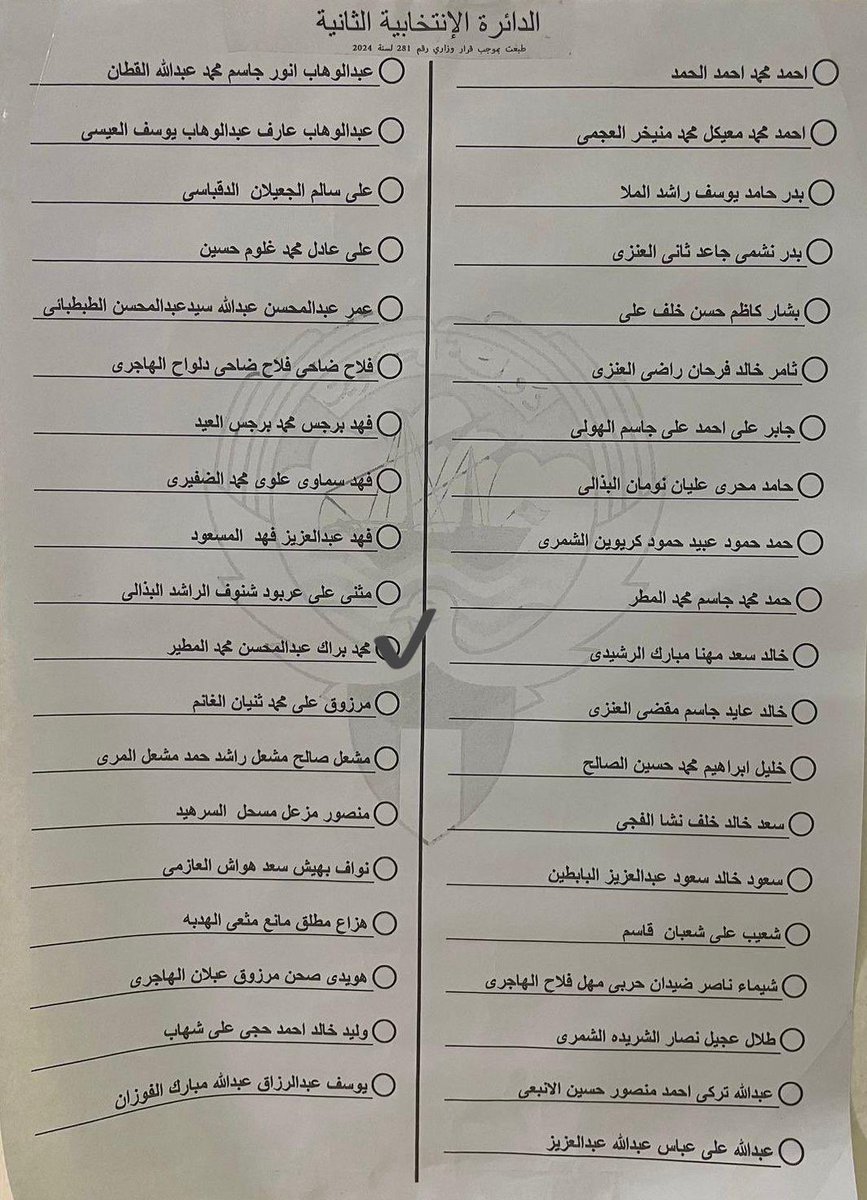 الدائرة الإنتخابية الثانية
طبعت بموجب قرار وزاري رقم 281 لسنة 2024
احمد محمد احمد الحمد
احمد محمد معيكل محمد منيخر العجمى
بدر حامد يوسف راشد الملا
بدر نشمى جاعد ثانى العنزى
بشار كاظم حسن خلف على
ثامر خالد فرحان راضى العنزى
جابر على احمد على جاسم الهولى
حامد محرى عليان نومان البذالى
حمد حمود عبيد حمود كريوين الشمرى
حمد محمد جاسم محمد المطر
خالد سعد مهنا مبارك الرشيدى
خالد عايد جاسم مقضى العنزى
خليل ابراهيم محمد حسين الصالح
سعد خالد خلف نشا الفجى
سعود خالد سعود عبدالعزيز البابطين
شعيب على شعبان قاسم
شيماء ناصر ضيدان حربى مهل فلاح الهاجرى
طلال عجيل نصار الشريده الشمرى
عبدالله تركى احمد منصور حسين الانبعى
عبدالله على عباس عبدالله عبدالعزيز
عبدالوهاب انور جاسم محمد عبدالله القطان
عبدالوهاب عارف عبدالوهاب يوسف العيسى
على سالم الجعيلان الدقباسى
على عادل محمد غلوم حسين
عمر عبدالمحسن عبدالله سيدعبدالمحسن الطبطبائى
فلاح ضاحى فلاح ضاحى دلواح الهاجرى
فهد برجس محمد برجس العيد
فهد سماوى علوى محمد الضفيرى
فهد عبدالعزيز فهد المسعود
مثنى على عربود شنوف الراشد البذالى
محمد براك عبدالمحسن محمد المطير
مرزوق على محمد ثنيان الغانم
مشعل صالح مشعل راشد حمد مشعل المرى
منصور مزعل مسحل السرهيد
نواف بهيش سعد هواش العازمى
هزاع مطلق مانع مثعى الهدبه
هويدى صحن مرزوق عبلان الهاجرى
وليد خالد احمد حجى على شهاب
يوسف عبدالرزاق عبدالله مبارك الفوزان